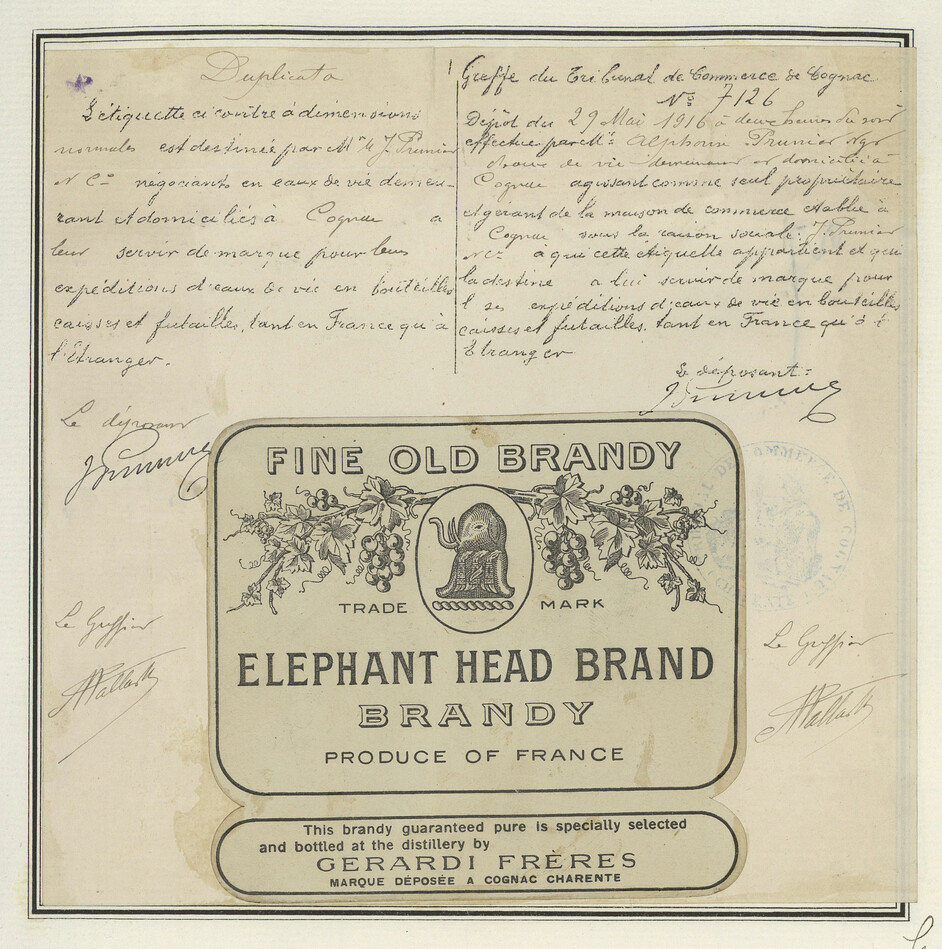 Duplicata
L'étiquette ci contre à dimensions
normales est destinée par Mr J. Prunier
& Cie négociants en eaux de vie demeu-
rant et domiciliés à Cognac a
leur servir de marque pour leurs
expéditions d'eaux de vie en bouteilles
caisses et futailles, tant en France qu'à
l'Étranger.
Le déposant
Le Greffier
Greffe du Tribunal de Commerce de Cognac
No 7126
Dépôt du 29 Mai 1916 à deux heures du soir
effectué par Mr Alphonse Prunier Ngt
d'eaux de vie demeurant et domicilié à
Cognac agissant comme seul propriétaire
et gérant de la maison de commerce établie à
Cognac sous la raison sociale J. Prunier
& Cie à qui cette étiquette appartient et qui
la destine a lui servir de marque pour
ses expéditions d'eaux de vie en bouteilles
caisses et futailles, tant en France qu'à l'
Étranger
Le déposant:
Le Greffier
FINE OLD BRANDY
TRADE MARK
ELEPHANT HEAD BRAND
BRANDY
PRODUCE OF FRANCE
This brandy guaranteed pure is specially selected
and bottled at the distillery by
GERARDI FRÈRES
MARQUE DÉPOSÉE A COGNAC CHARENTE